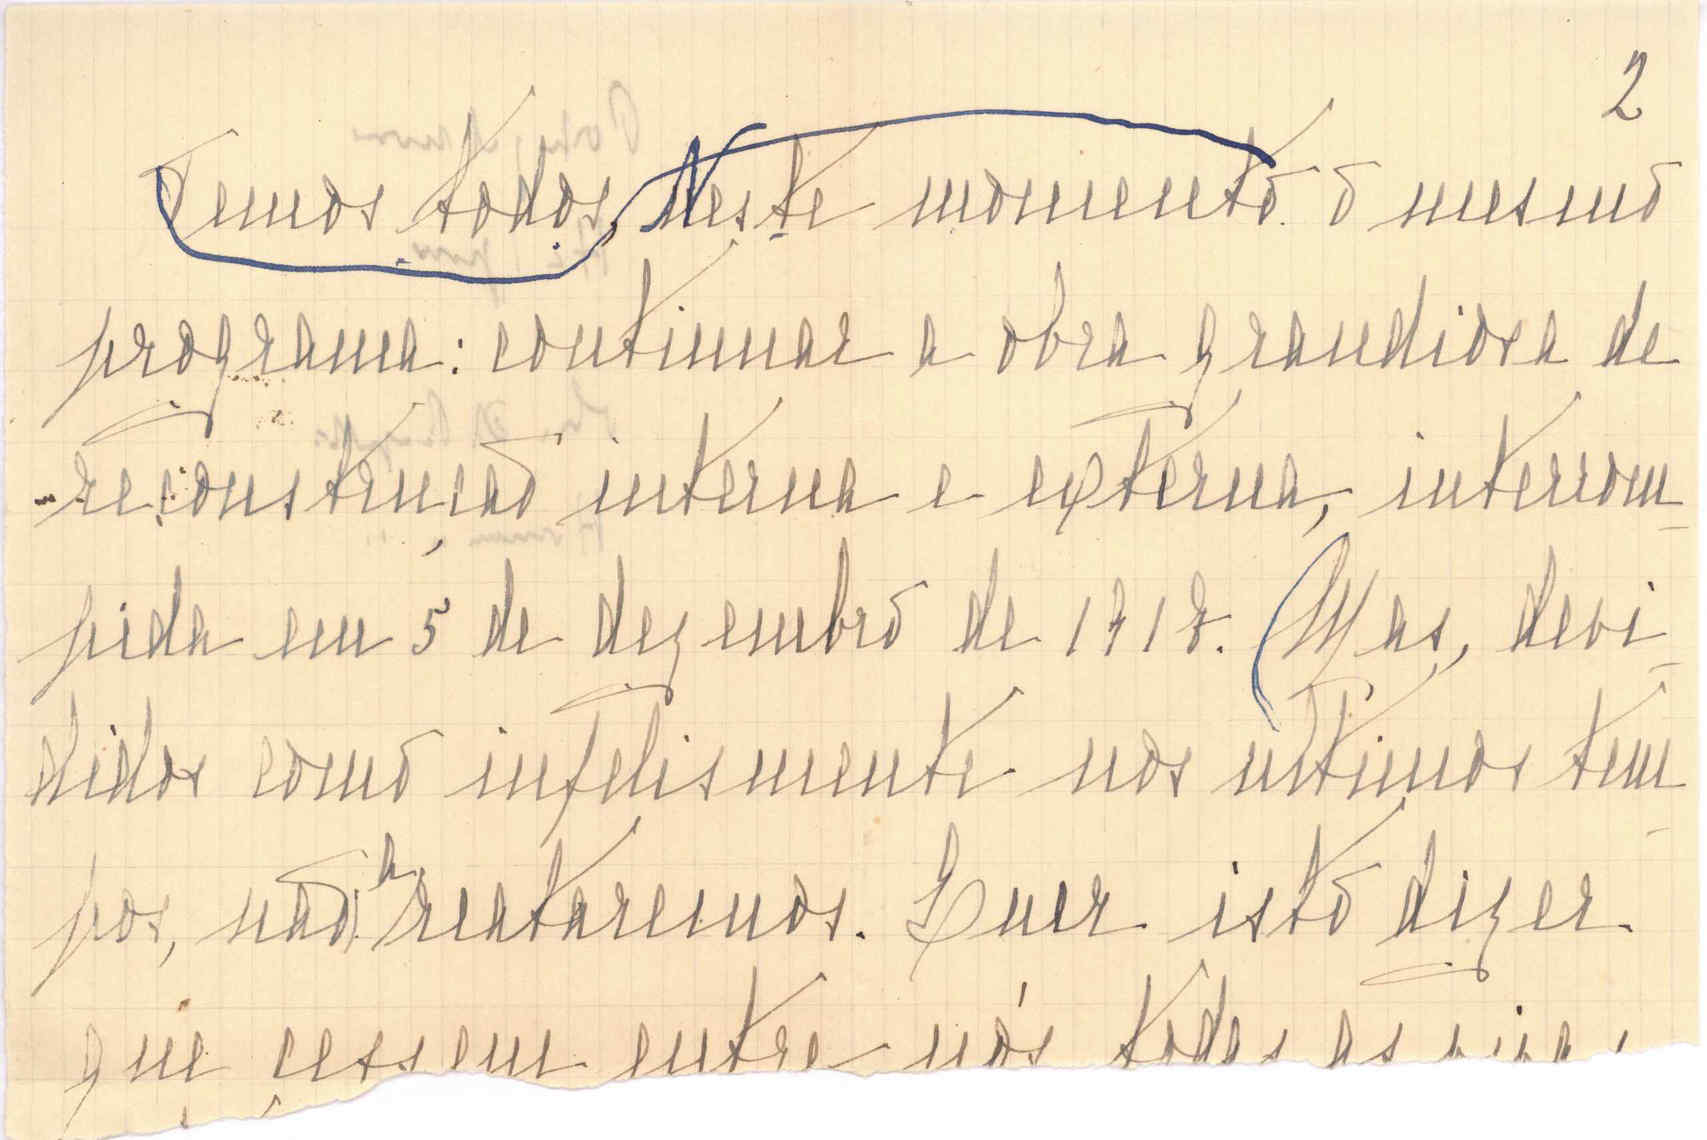 2
Temos todos, Neste momento o mesmo
programa: continuar a obra grandiosa de
reconstrução interna e externa, interrom-
pida em 5 de dezembro de 1917. Mas, devi-
didos como infelismente nos últimos tem-
pos, não a reataremos. Quer isto dizer
que cessem entre nós todas as